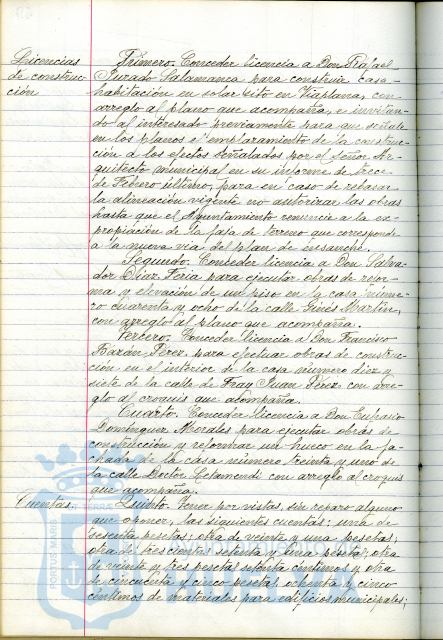 Licencias
de construc-
ción
Primero. Conceder licencia a Don Rafael
Jurado Salamanca para construir casa-
habitación en solar sito en Viaplana, con
arreglo al plano que acompaña, e invitan-
do al interesado previamente para que señale
en los planos el emplazamiento de la construc-
ción a los efectos señalados por el Señor Ar-
quitecto municipal en su informe de trece
de Febrero último, para en caso de rebasar
la alineación vigente no autorizar las obras
hasta que el Ayuntamiento renuncie a la ex-
propiación de la faja de terreno que corresponde
a la nueva vía del plan de ensanche.
Segundo. Conceder licencia a Don Salva-
dor Díaz Feria para ejecutar obras de refor-
ma y elevación de un piso en la casa núme-
ro cuarenta y ocho de la calle Ginés Martín,
con arreglo al plano que acompaña.
Tercero. Conceder licencia a Don Francisco
Bazán Pérez para efectuar obras de construc-
ción en el interior de la casa número diez y
siete de la calle de Fray Juan Pérez con arre-
glo al croquis que acompaña.
Cuarto. Conceder licencia a Don Eufrasio
Domínguez Morales para ejecutar obras de
construcción y reformar un hueco en la fa-
chada de la casa número treinta y uno de
la calle Doctor Letamendi con arreglo al croquis
que acompaña.
Cuentas.
Quinto. Tener por vistas, sin reparo alguno
que oponer, las siguientes cuentas: una de
sesenta pesetas; otra de veinte y una pesetas;
otra de trescientas setenta y una peseta; otra
de veinte y tres pesetas setenta céntimos y otra
de cincuenta y cinco pesetas, ochenta y cinco
céntimos de materiales para edificios municipales;
PORTUS MARIS